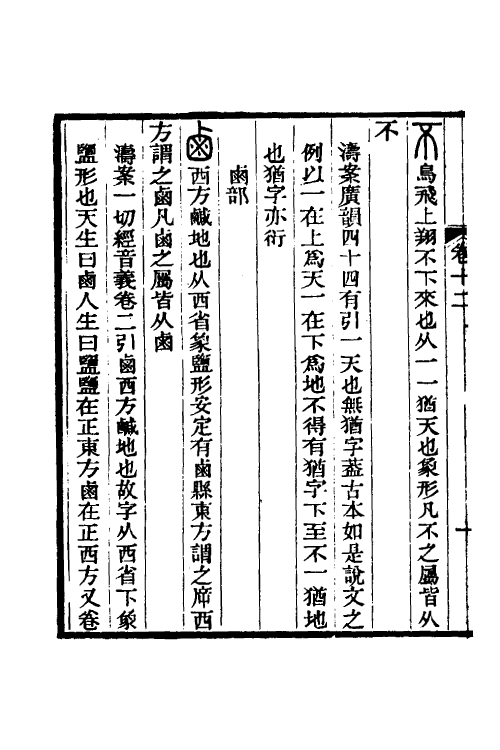 卷十二
不鳥飛上翔不下來也从一一猶天也象形凡不之屬皆从
不
濤案廣韻四十四有引一天也無猶字蓋古本如是說文之
例以一在上爲天一在下爲地不得有猶字下至不一猶地
也猶字亦衍
鹵部
鹵西方鹹地也从西省象鹽形安定有鹵縣東方謂之㡿西
方謂之鹵凡鹵之屬皆从鹵
濤案一切經音義卷二引鹵西方鹹地也故字从西省下象
鹽形也天生曰鹵人生曰鹽鹽在正東方鹵在正西方又卷